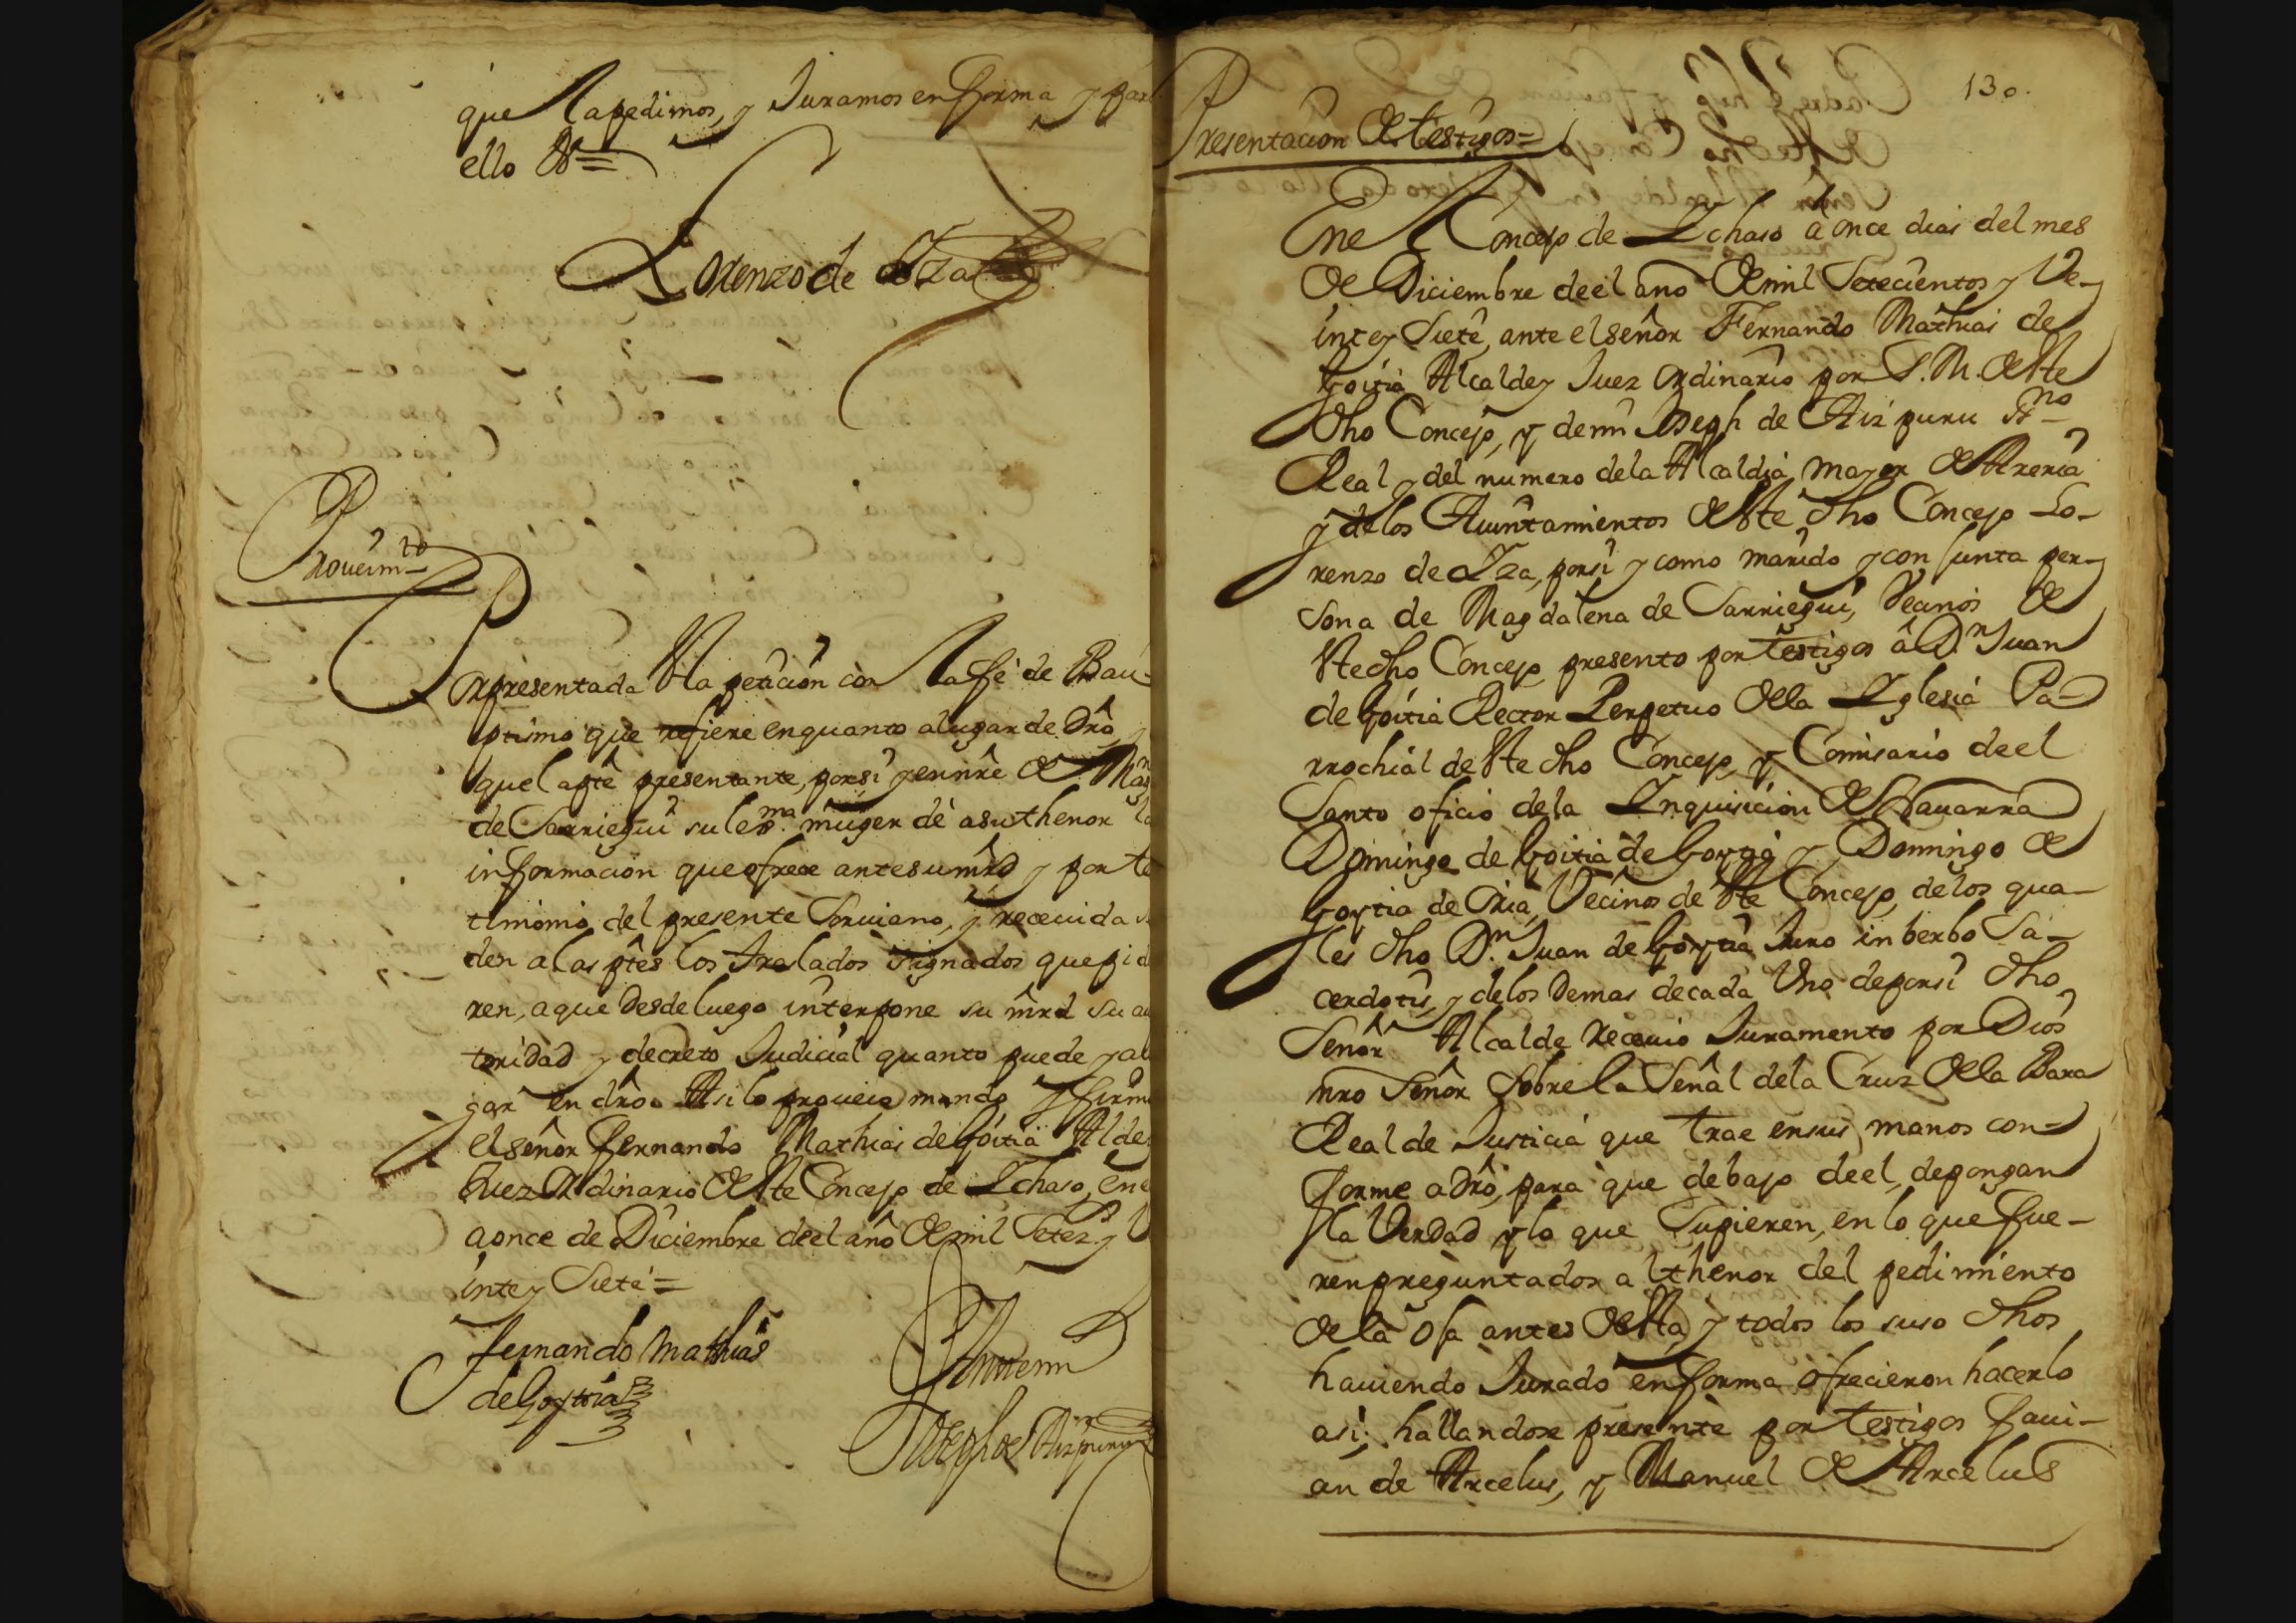 que la pedimos, y Juramos en forma y para
ello &ª=
Lorenzo de Yza
Proueimto
Por presentada esta peticion con la fè de Bau-
ptismo que refiere en quanto a lugar de dro, y
que la pte presentante, por si y en nre de Magna
de Sarriegui su lexma muger dè a su thenor la
informacion que ofrece ante su mrd y por tes
timonio del presente Scriuano, y recevida se
den a las ptes los traslados signados que pidie
ren, a que desde luego interpone su mrd su au
toridad y decreto Judicial quanto puede y a lu
gar en dro. Asi lo proueio mando y firmo
el señor Fernando Mathias de Goitia Alde y
Juez Ordinario deste Concejo de Ychaso, en el
a once de Diciembre de el año de mil Setez. y Ve
inte y Siete=
Fernando Mathias
de Goytia
Ante mi
Joseph de Aizpuru
130.
Presentacion de testigos=
En el Concejo de Ychaso à once dias del mes
de Diciembre de el año de mil Setecientos y Ve-
inte y Siete, ante el señor Fernando Mathias de
Goitia Alcalde y Juez ordinario por S. M. deste
dho Concejo, y de mi Joseph de Aizpuru Sno
Real y del numero de la Alcaldia mayor de Areria
y de los Aiuntamientos deste dho Concejo Lo-
renzo de Yza, por si y como marido y conjunta per-
sona de Magdalena de Sarriegui, Vecinos de
este dho Concejo presento por testigos â Dn Juan
de Goitia Rector Perpetuo de la Yglesia Pa-
rrochial de este dho Concejo, y Comisario de el
Santo oficio de la Ynquisicion de Nauarra
Domingo de Goitia de Goyga y Domingo de
Goytia de Oria, Vecinos de este Concejo, de los qua-
les dho Dn Juan de Goytia Juro in berbo Sa-
cerdotis, y de los demas de cada Uno de por si dho
Señor Alcalde recevio Juramento por Dios
nro Señor Sobre la Señal de la Cruz de la Bara
Real de Justicia que trae en sus manos con-
forme a dro, para que debajo de el, depongan
la Verdad y lo que Supieren, en lo que fue-
ren preguntados al thenor del pedimiento
de la oja antes desta, y todos los suso dhos
hauiendo Jurado en forma ofrecieron hacerlo
asi; hallandose presente por testigos Faui-
an de Arcelus, y Manuel de Arcelus